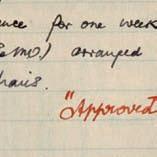 ence for one week
arranged
"Approved